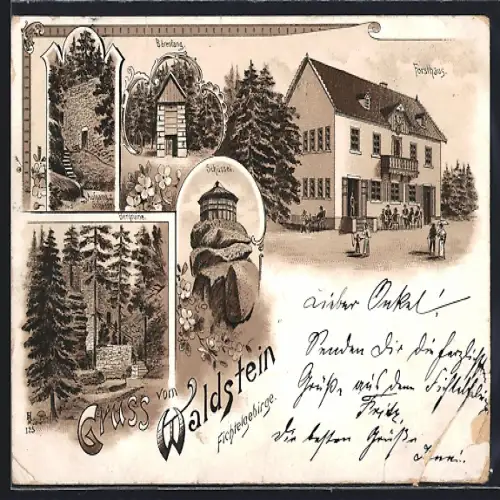 Bärenfang.
Forsthaus.
Schüssel.
Bergruine.
Gruss vom Waldstein
Fichtelgebirge.
Lieber Onkel!
Senden Dir die herzlichsten
Grüße aus dem Fichtelgeb.
Fritz.
Die besten Grüße
125